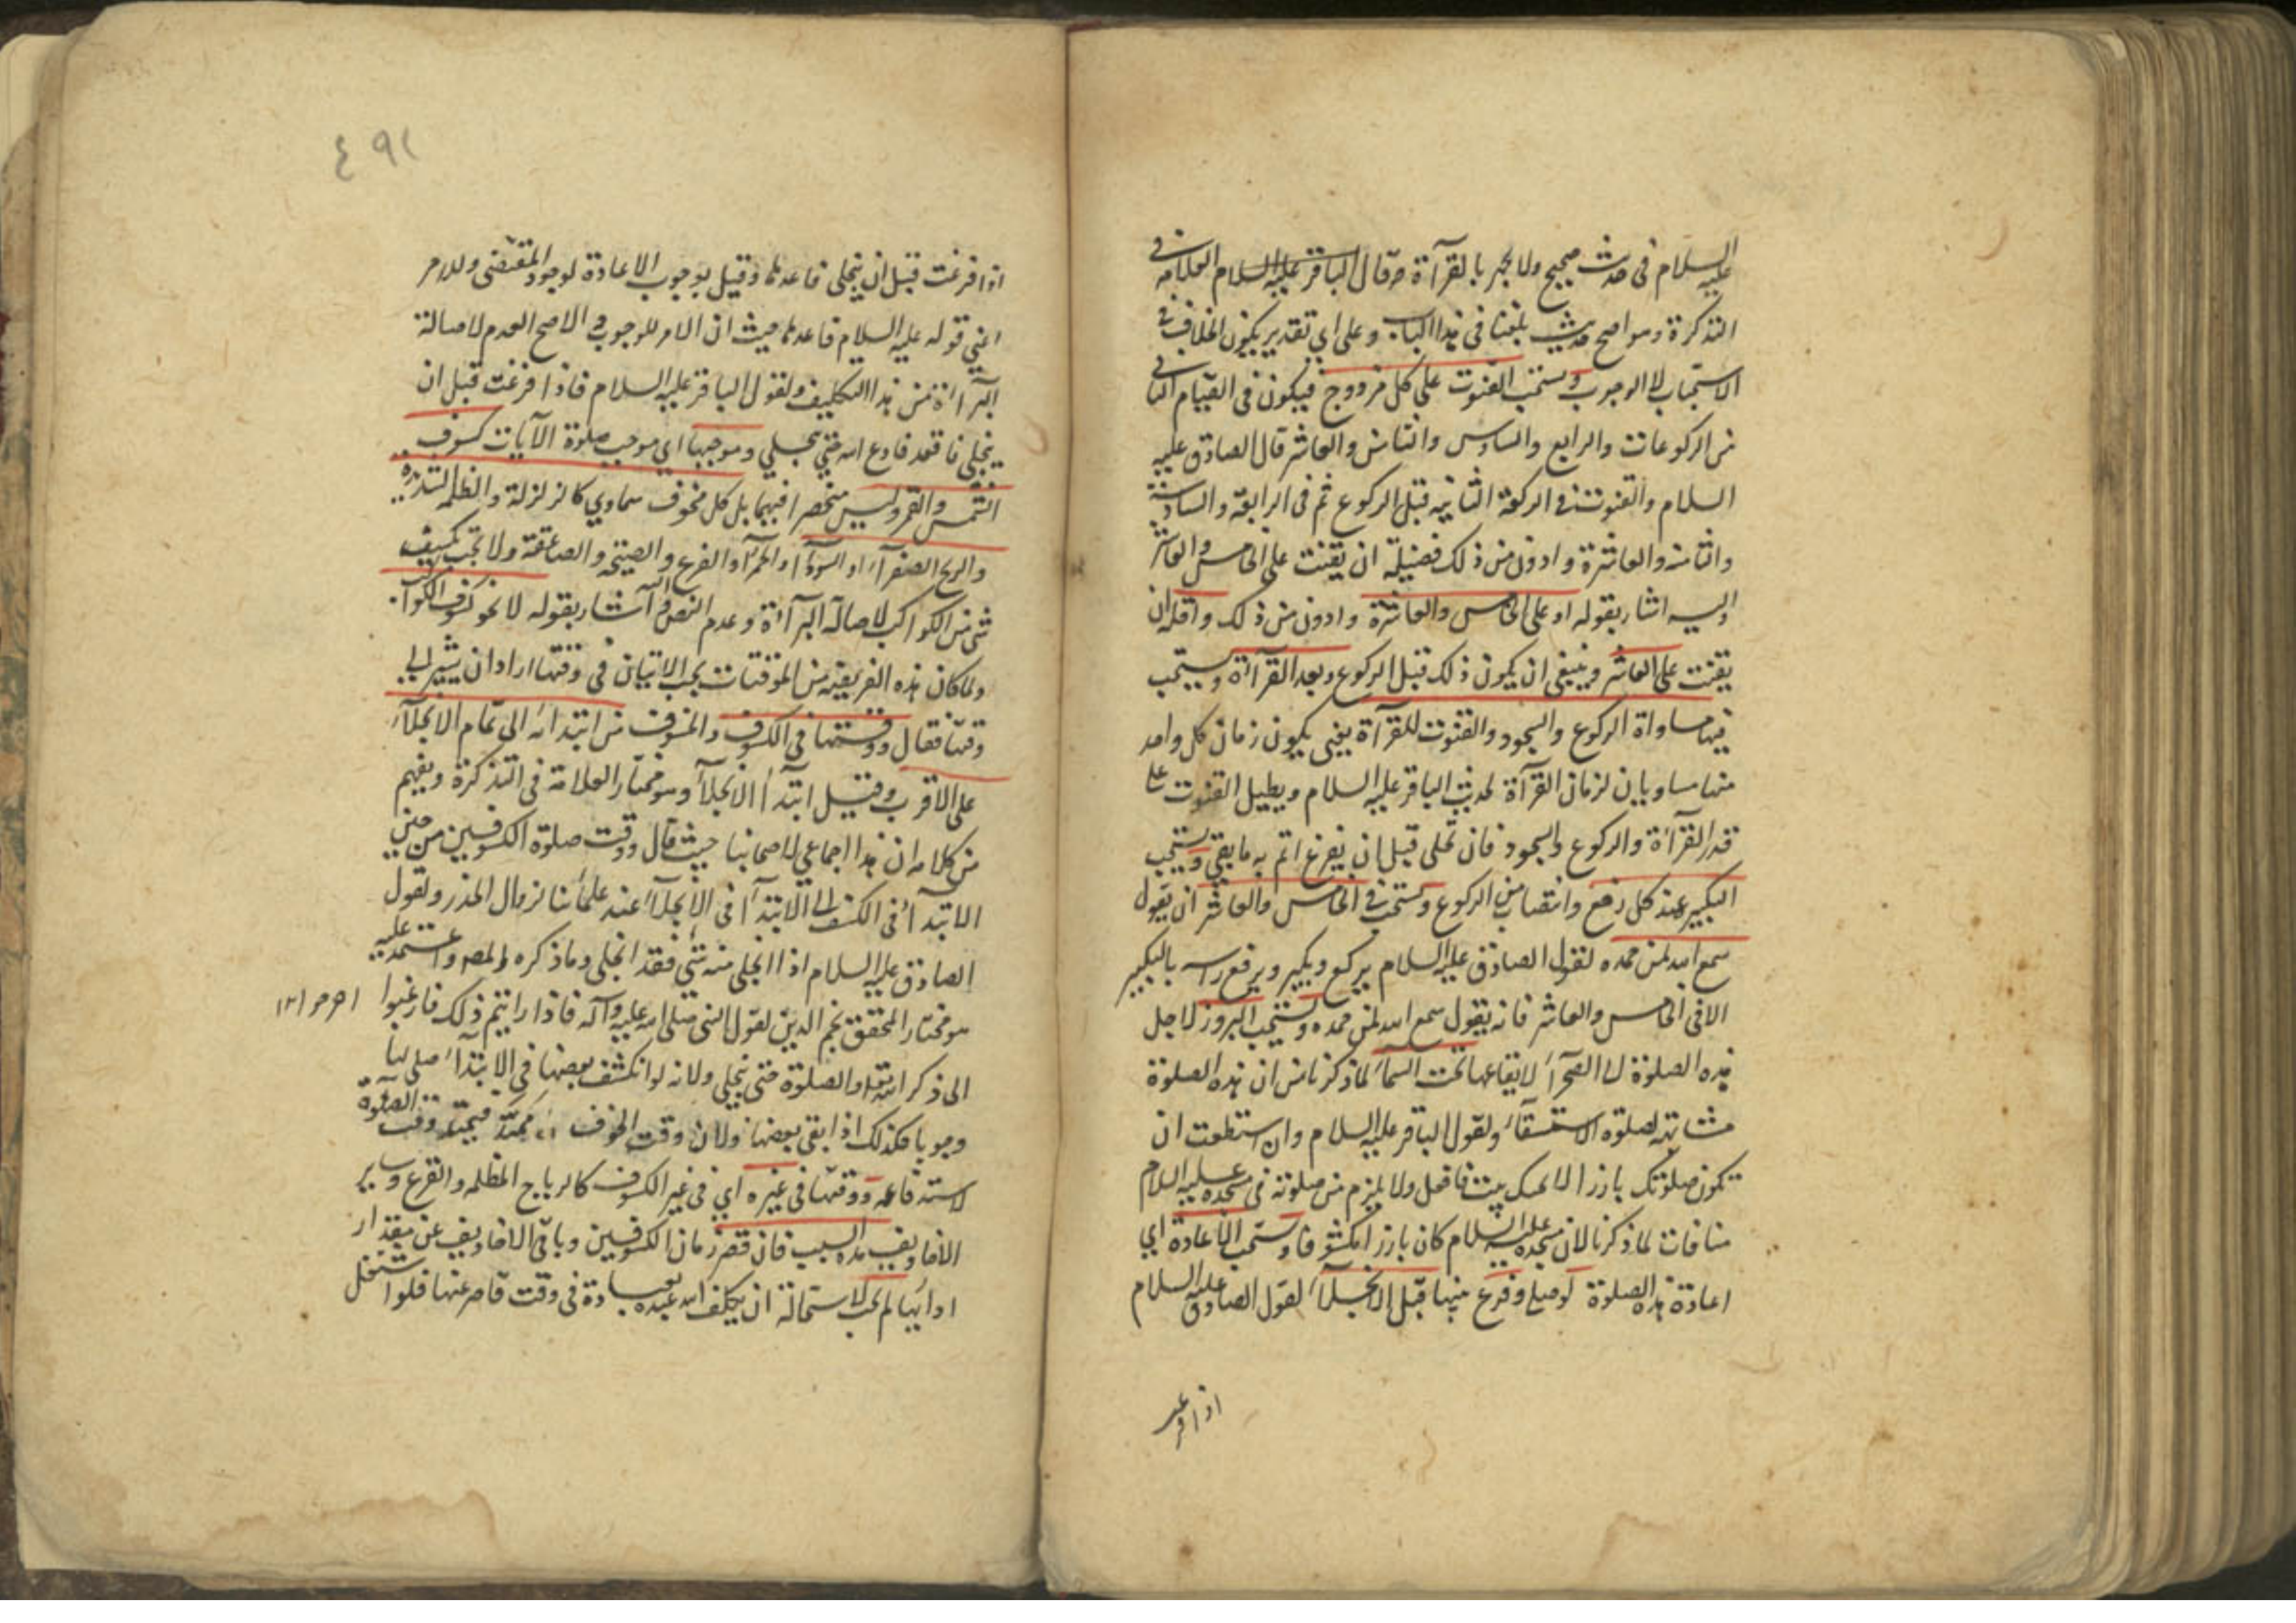 عليه السلام في حديث صحيح ولا يجهر بالقرآءة وقال الباقر عليه السلام العلامة في
التذكرة وهو اصح حديث بلغنا في هذا الباب وعلى اي تقدير يكون الخلاف في
الاستحباب لا الوجوب ويستحب القنوت على كل مزدوج فيكون في القيام الثاني
من الركوعات والرابع والسادس والثامن والعاشر قال الصادق عليه
السلام والقنوت في الركعة الثانيه قبل الركوع ثم في الرابعة والسادسة
والثامنه والعاشرة وادون من ذلك فضيلة ان يقنت على الخامس والعاشر
واليه اشار بقوله او على الخامس والعاشرة وادون من ذلك واقله ان
يقنت على العاشر وينبغي ان يكون ذلك قبل الركوع وبعد القرآءة ويستحب
فيها مساواة الركوع والسجود والقنوت للقرآءة يعني يكون زمان كل واحد
منها مساويا لزمان القرآءة لحديث الباقر عليه السلام ويطيل القنوت على
قدر القرآءة والركوع والسجود فان تجلى قبل ان يفرغ اتم به ما بقي ويستحب
التكبير عند كل رفع وانتصاب من الركوع ويستحب في الخامس والعاشر ان يقول
سمع الله لمن حمده لقول الصادق عليه السلام يركع ويكبر ويرفع راسه بالتكبير
الا في الخامس والعاشر فانه يقول سمع الله لمن حمده ويستحب البروز لاجل
هذه الصلوة الى الصحرآء لايقاعها تحت السمآء لما ذكرنا من ان هذه الصلوة
مشابهة لصلوة الاستسقآء ولقول الباقر عليه السلام وان استطعت ان
تكون صلوتك بارزا لا يجنك بيت فافعل ولا يلزم من صلوته في مسجده عليه السلام
منافات لما ذكرنا لان مسجده عليه السلام كان بارزا مكشوفا ويستحب الاعادة اي
اعادة هذه الصلوة لو صلى وفرغ منها قبل الانجلآء لقول الصادق عليه السلام
اذا فرغت
٤٩١
اذا فرغت قبل ان ينجلي فاعدها وقيل بوجوب الاعادة لوجود المقتضي وللامر
اعني قوله عليه السلام فاعدها حيث ان الامر للوجوب والاصح العدم لاصالة
البرآءة من هذا التكليف ولقول الباقر عليه السلام فاذا فرغت قبل ان
ينجلي فاقعد فادع الله حتى ينجلي وموجبها اي موجب صلوة الآيات كسوف
الشمس والقمر وليس منحصرا فيهما بل كل مخوف سماوي كالزلزلة والظلمه الشديده
والريح الصفرآء او السودآء او الحمرآء والفزع والصيحه والصاعقة ولا تجب بكسف
شي من الكواكب لاصالة البرآءة وعدم النص واليه اشار بقوله لا نحو كسوف الكواكب
ولما كان هذه الفريضه من الموقتات يجب الاتيان في وقتها اراد ان يشير الى
وقتها فقال ووقتها في الكسوف والخسوف من ابتدائه الى تمام الانجلآء
على الاقرب وقيل ابتدآء الانجلآء وهو مختار العلامة في التذكرة ويفهم
من كلامه ان هذا اجماعي لاصحابنا حيث قال ووقت صلوة الكسوفين من حين
الابتدآء في الكسف الى الابتدآء في الانجلآء عند علمائنا لزوال الحذر ولقول
الصادق عليه السلام اذا انجلى منه شي فقد انجلى وما ذكره المصنف واعتمد عليه
هو مختار المحقق نجم الدين لقول النبي صلى الله عليه وآله فاذا رايتم ذلك فارغبوا
الى ذكر الله تعالى والصلوة حتى ينجلي ولانه لو انكشف بعضها في الابتدآء صلى لها
وجوبا فكذلك اذا بقي بعضها ولان وقت الخوف ممتد فيمتد وقت الصلوة
لاستدفاعه ووقتها في غيره اي في غير الكسوف كالرياح المظلمه والفزع وساير
الاخاويف مده السبب فان قصر زمان الكسوفين وباقي الاخاويف عن مقدار
ادائها لم تجب لاستحالة ان يكلف الله عبده بعبادة في وقت قاصر عنها فلو اشتغل